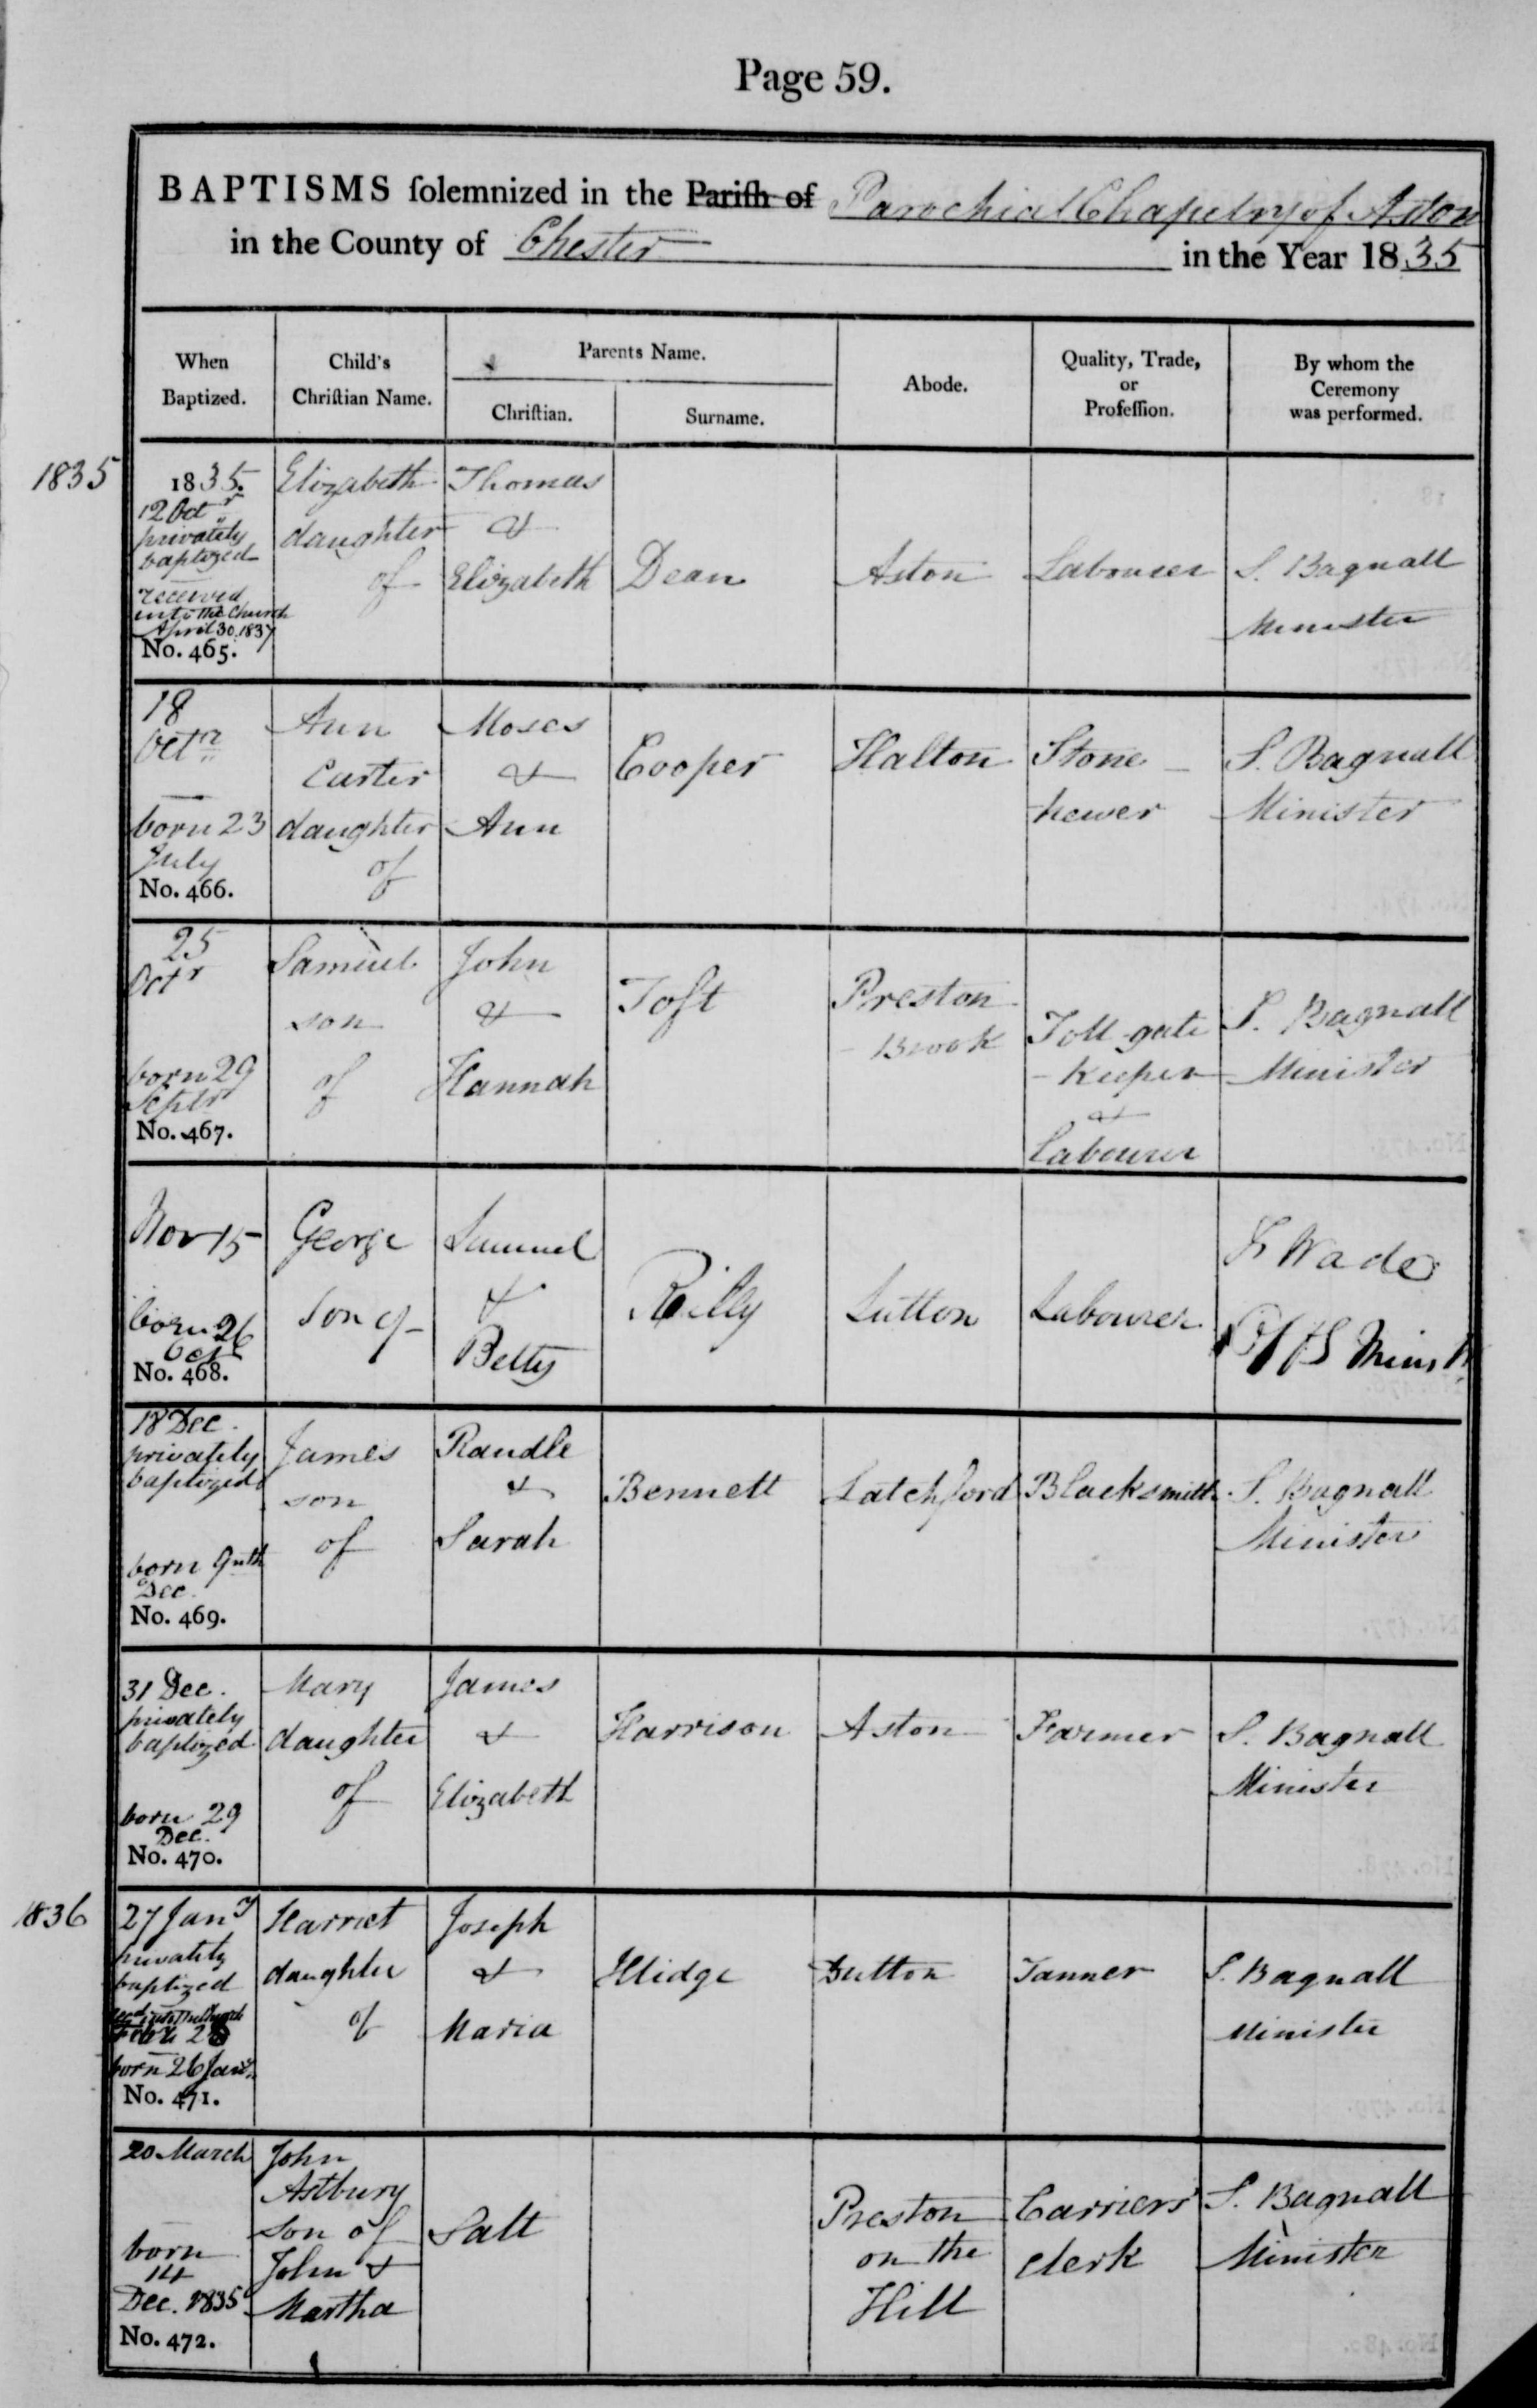 Page 59.
BAPTISMS ſolemnized in the Pariſh of Parochial Chapelry of Aston
in the County of Chester in the Year 1835
When Baptized.
Child's Chriſtian Name.
Parents Name.
Chriſtian.
Surname.
Abode.
Quality, Trade, or Profeſſion.
By whom the Ceremony was performed.
1835
1835.
12 Octr
privately
baptized
received
into the Church
April 30. 1837
No. 465.
Elizabeth
daughter
of
Thomas
&
Elizabeth
Dean
Aston
Labourer
S. Bagnall
Minister
18
Octr
born 23
July
No. 466.
Ann
Carter
daughter
of
Moses
&
Ann
Cooper
Halton
Stone
hewer
S. Bagnall
Minister
25
Octr
born 29
Septr
No. 467.
Samuel
son
of
John
&
Hannah
Toft
Preston
- Brook
Toll gate
- Keeper
&
Labourer
S. Bagnall
Minister
Nov 15
born 26
Oct
No. 468.
George
Son of
Samuel
&
Betty
Rilly
Sutton
Labourer
Wade
Offg Minr
18 Dec.
privately
baptized
born 9nth
Dec.
No. 469.
James
son
of
Randle
&
Sarah
Bennett
Latchford
Blacksmith
S. Bagnall
Minister
31 Dec.
privately
baptized
born 29
Dec.
No. 470.
Mary
daughter
of
James
&
Elizabeth
Harrison
Aston
Farmer
S. Bagnall
Minister
1836
27 Jany
privately
baptized
recd into the Church
28
born 26 Jany
No. 471.
Harriet
daughter
of
Joseph
&
Maria
Hidge
Sutton
Tanner
S. Bagnall
Minister
20 March
born
14
Dec. 1835
No. 472.
John
Astbury
son of
John &
Martha
Salt
Preston
on the
Hill
Carriers'
clerk
S. Bagnall
Minister